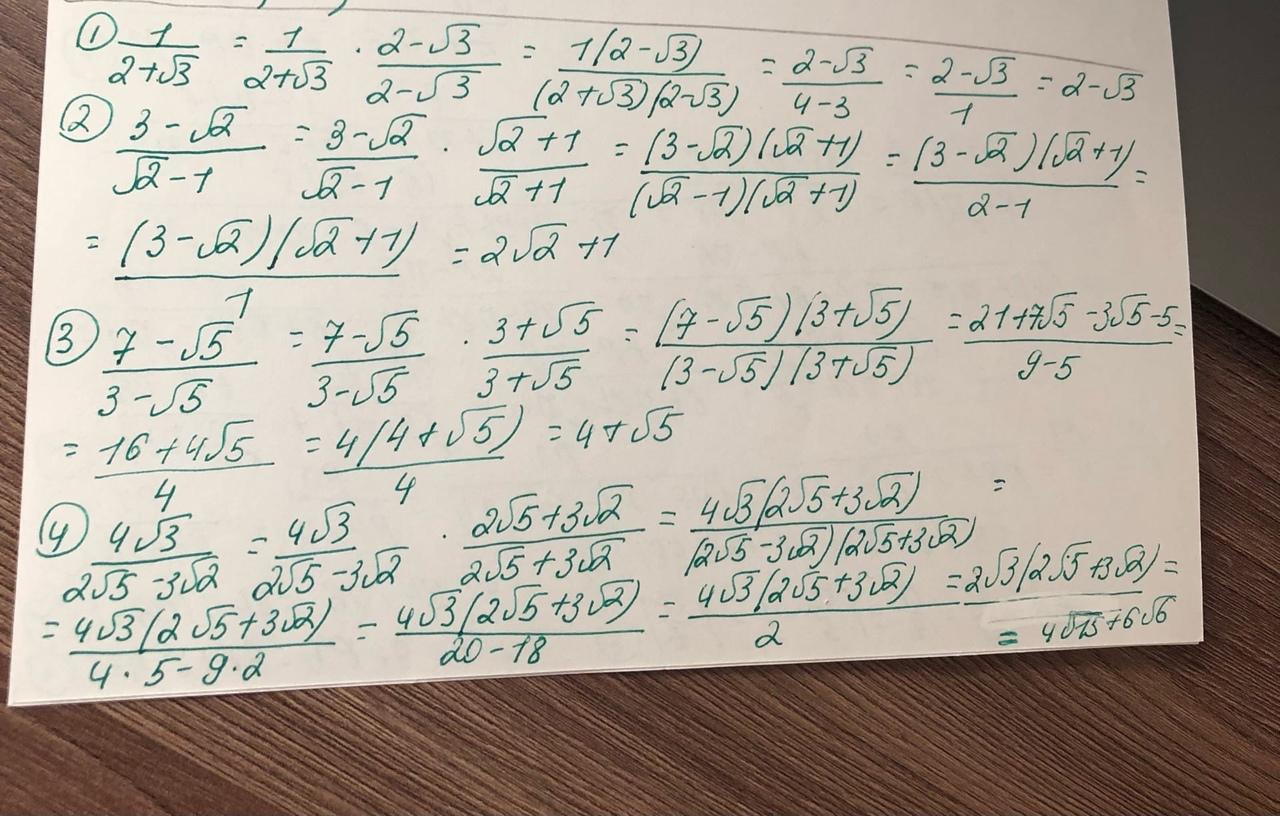 ① 1/(2+√3) = 1/(2+√3) · (2-√3)/(2-√3) = 1(2-√3)/((2+√3)(2-√3)) = (2-√3)/(4-3) = (2-√3)/1 = 2-√3
② (3-√2)/(√2-1) = (3-√2)/(√2-1) · (√2+1)/(√2+1) = (3-√2)(√2+1)/((√2-1)(√2+1)) = (3-√2)(√2+1)/(2-1) =
= (3-√2)(√2+1)/1 = 2√2+1
③ (7-√5)/(3-√5) = (7-√5)/(3-√5) · (3+√5)/(3+√5) = (7-√5)(3+√5)/((3-√5)(3+√5)) = (21+7√5-3√5-5)/(9-5) =
= (16+4√5)/4 = 4(4+√5)/4 = 4+√5
④ 4√3/(2√5-3√2) = 4√3/(2√5-3√2) · (2√5+3√2)/(2√5+3√2) = 4√3(2√5+3√2)/((2√5-3√2)(2√5+3√2)) =
= 4√3(2√5+3√2)/(4·5-9·2) = 4√3(2√5+3√2)/(20-18) = 4√3(2√5+3√2)/2 = 2√3(2√5+3√2) =
= 4√15+6√6